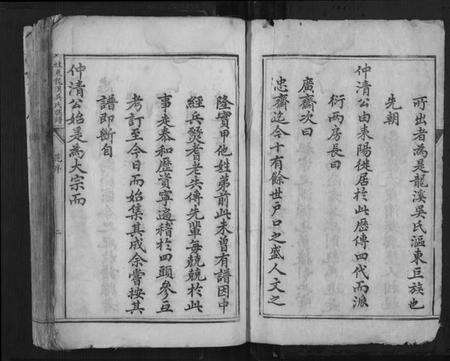 所出者為是龍溪吳氏漚東巨族也
先朝
仲清公由東陽徙居於此歷傳四代而派
衍兩房長曰
廣齋次曰
忠齋迄今十有餘世戶口之盛人文之
隆實甲他姓弟前此未曾有譜因中
經兵燹耆老共傳先輩每兢兢於此
事走泰和歷資寧遍稽於四頭參互
考訂至今日而始集其成余嘗按其
譜即斷自
仲清公始是為大宗而